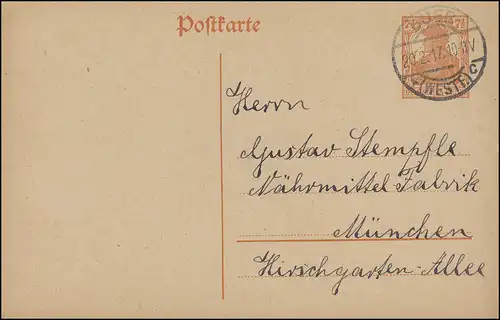 Postkarte
7½
BUER
20.2.17.10-11V
(WESTF.)
Herrn
Gustav Stempfle
Nährmittel Fabrik
München
Hirschgarten-Allee